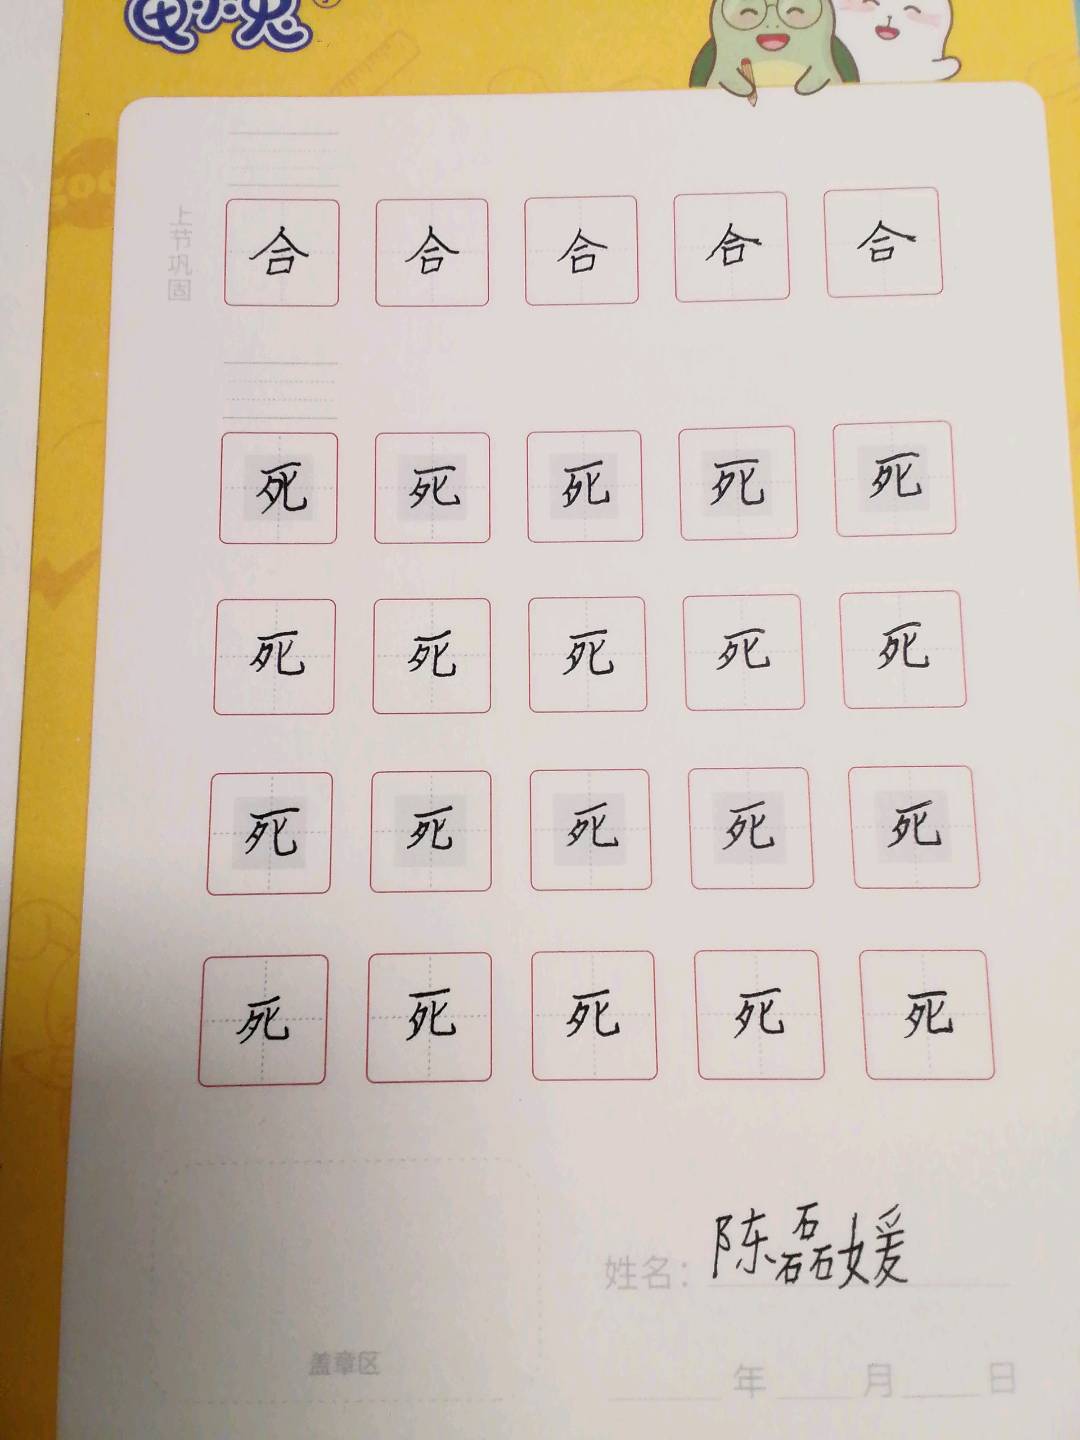 上节巩固
合 合 合 合 合
死 死 死 死 死
死 死 死 死 死
死 死 死 死 死
死 死 死 死 死
姓名：陈磊媛
盖章区
年 月 日